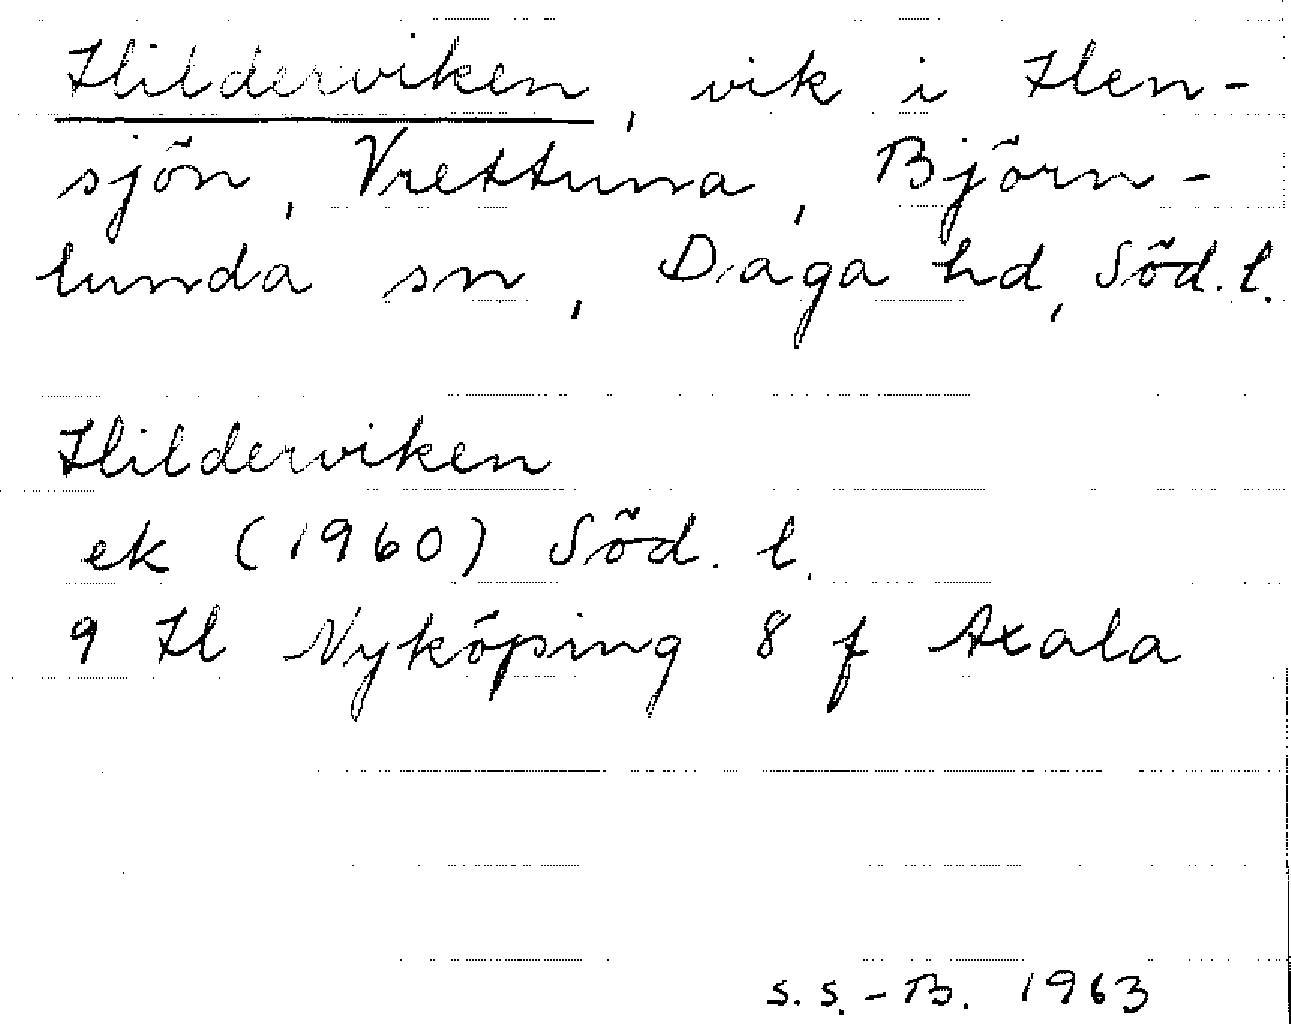 Hilderviken, vik i Hen-
sjön, Vrettuna, Björn-
lunda sn, Daga hd, Söd. l.
Hilderviken
ek (1960) Söd. l.
9 H Nyköping 8 f Axala
S. S.-B. 1963